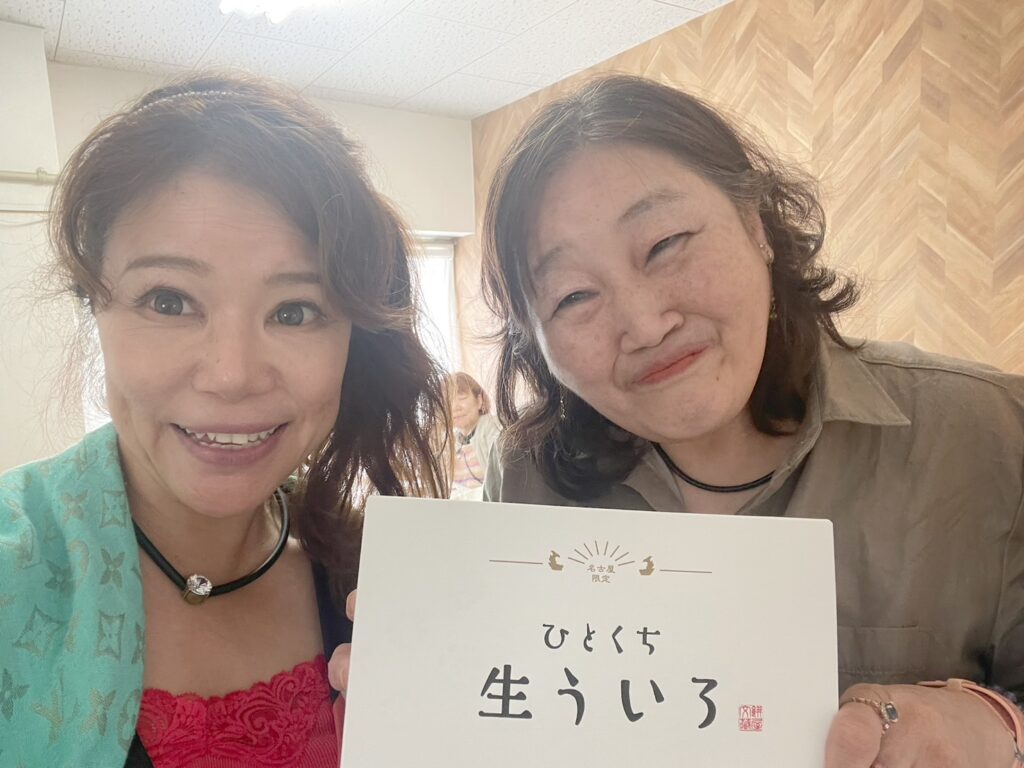 名古屋
限定
ひとくち
生ういろ